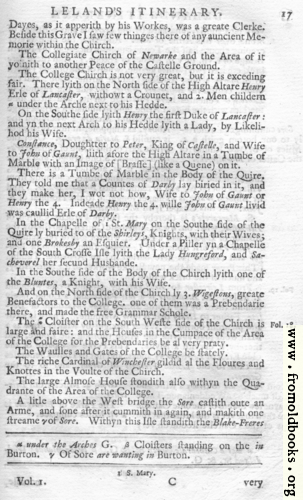 LELAND'S ITINERARY. 17
Dayes, as it apperith by his Workes, was a greate Clerke.
Beside this Grave I saw few thinges there of any auncient Me-
morie within the Chirch.
The Collegiate Chirch of Newarke and the Area of it
yoinith to another Peace of the Castelle Ground.
The College Chirch is not very great, but it is exceding
fair. There lyith on the North side of the High Altare Henry
Erle of Lancaster, withowt a Crounet, and 2. Men childern
α under the Arche next to his Hedde.
On the Southe side lyith Henry the first Duke of Lancaster:
and yn the next Arch to his Hedde lyith a Lady, by Likeli-
hod his Wife.
Constance, Doughtter to Peter, King of Castelle, and Wife
to John of Gaunt, liith afore the High Altare in a Tumbe of
Marble with an Image of [Brasse] (like a Quene) on it.
There is a Tumbe of Marble in the Body of the Quire.
They told me that a Countes of Darby lay biried in it, and
they make her, I wot not how, Wife to John of Gaunt or
Henry the 4. Indeade Henry the 4. wille John of Gaunt livid
was caullid Erle of Darby.
In the Chapelle of 1 St. Mary on the Southe side of the
Quire ly buried to of the Shirleys, Knights, with their Wives;
and one Brokesby an Esquier. Under a Piller yn a Chapelle
of the South Crosse Isle lyith the Lady Hungreford, and Sa-
cheverel her secund Husbande.
In the Southe side of the Body of the Chirch lyith one of
the Blunters, a Knight, with his Wife.
And on the North side of the Chirch ly 3. Wigestons, greate
Benefactors to the College. one of them was a Prebendarie
there, and made the free Grammar Schole.
The β Cloister on the South Weste side of the Chirch is
large and faire: and the Houses in the Cumpace of the Area
of the College for the Prebendaries be al very praty.
Fol.
The Waulles and Gates of the College be stately.
The riche Cardinal of Winchester gildid al the Floures and
Knottes in the Voulte of the Chirch.
The large Almose House stondith also withyn the Qua-
drante of the Area of the College.
A litle above the West bridge the Sore castith oute an
Arme, and sone after it cummith in again, and makith one
streame γ of Sore. Withyn this Isle standith the Blake-Freres
α under the Arches G. β Cloisters standing on the in
Burton. γ Of Sore are wanting in Burton.
1 S. Mary.
Vol. 1. C very
www.fromoldbooks.org